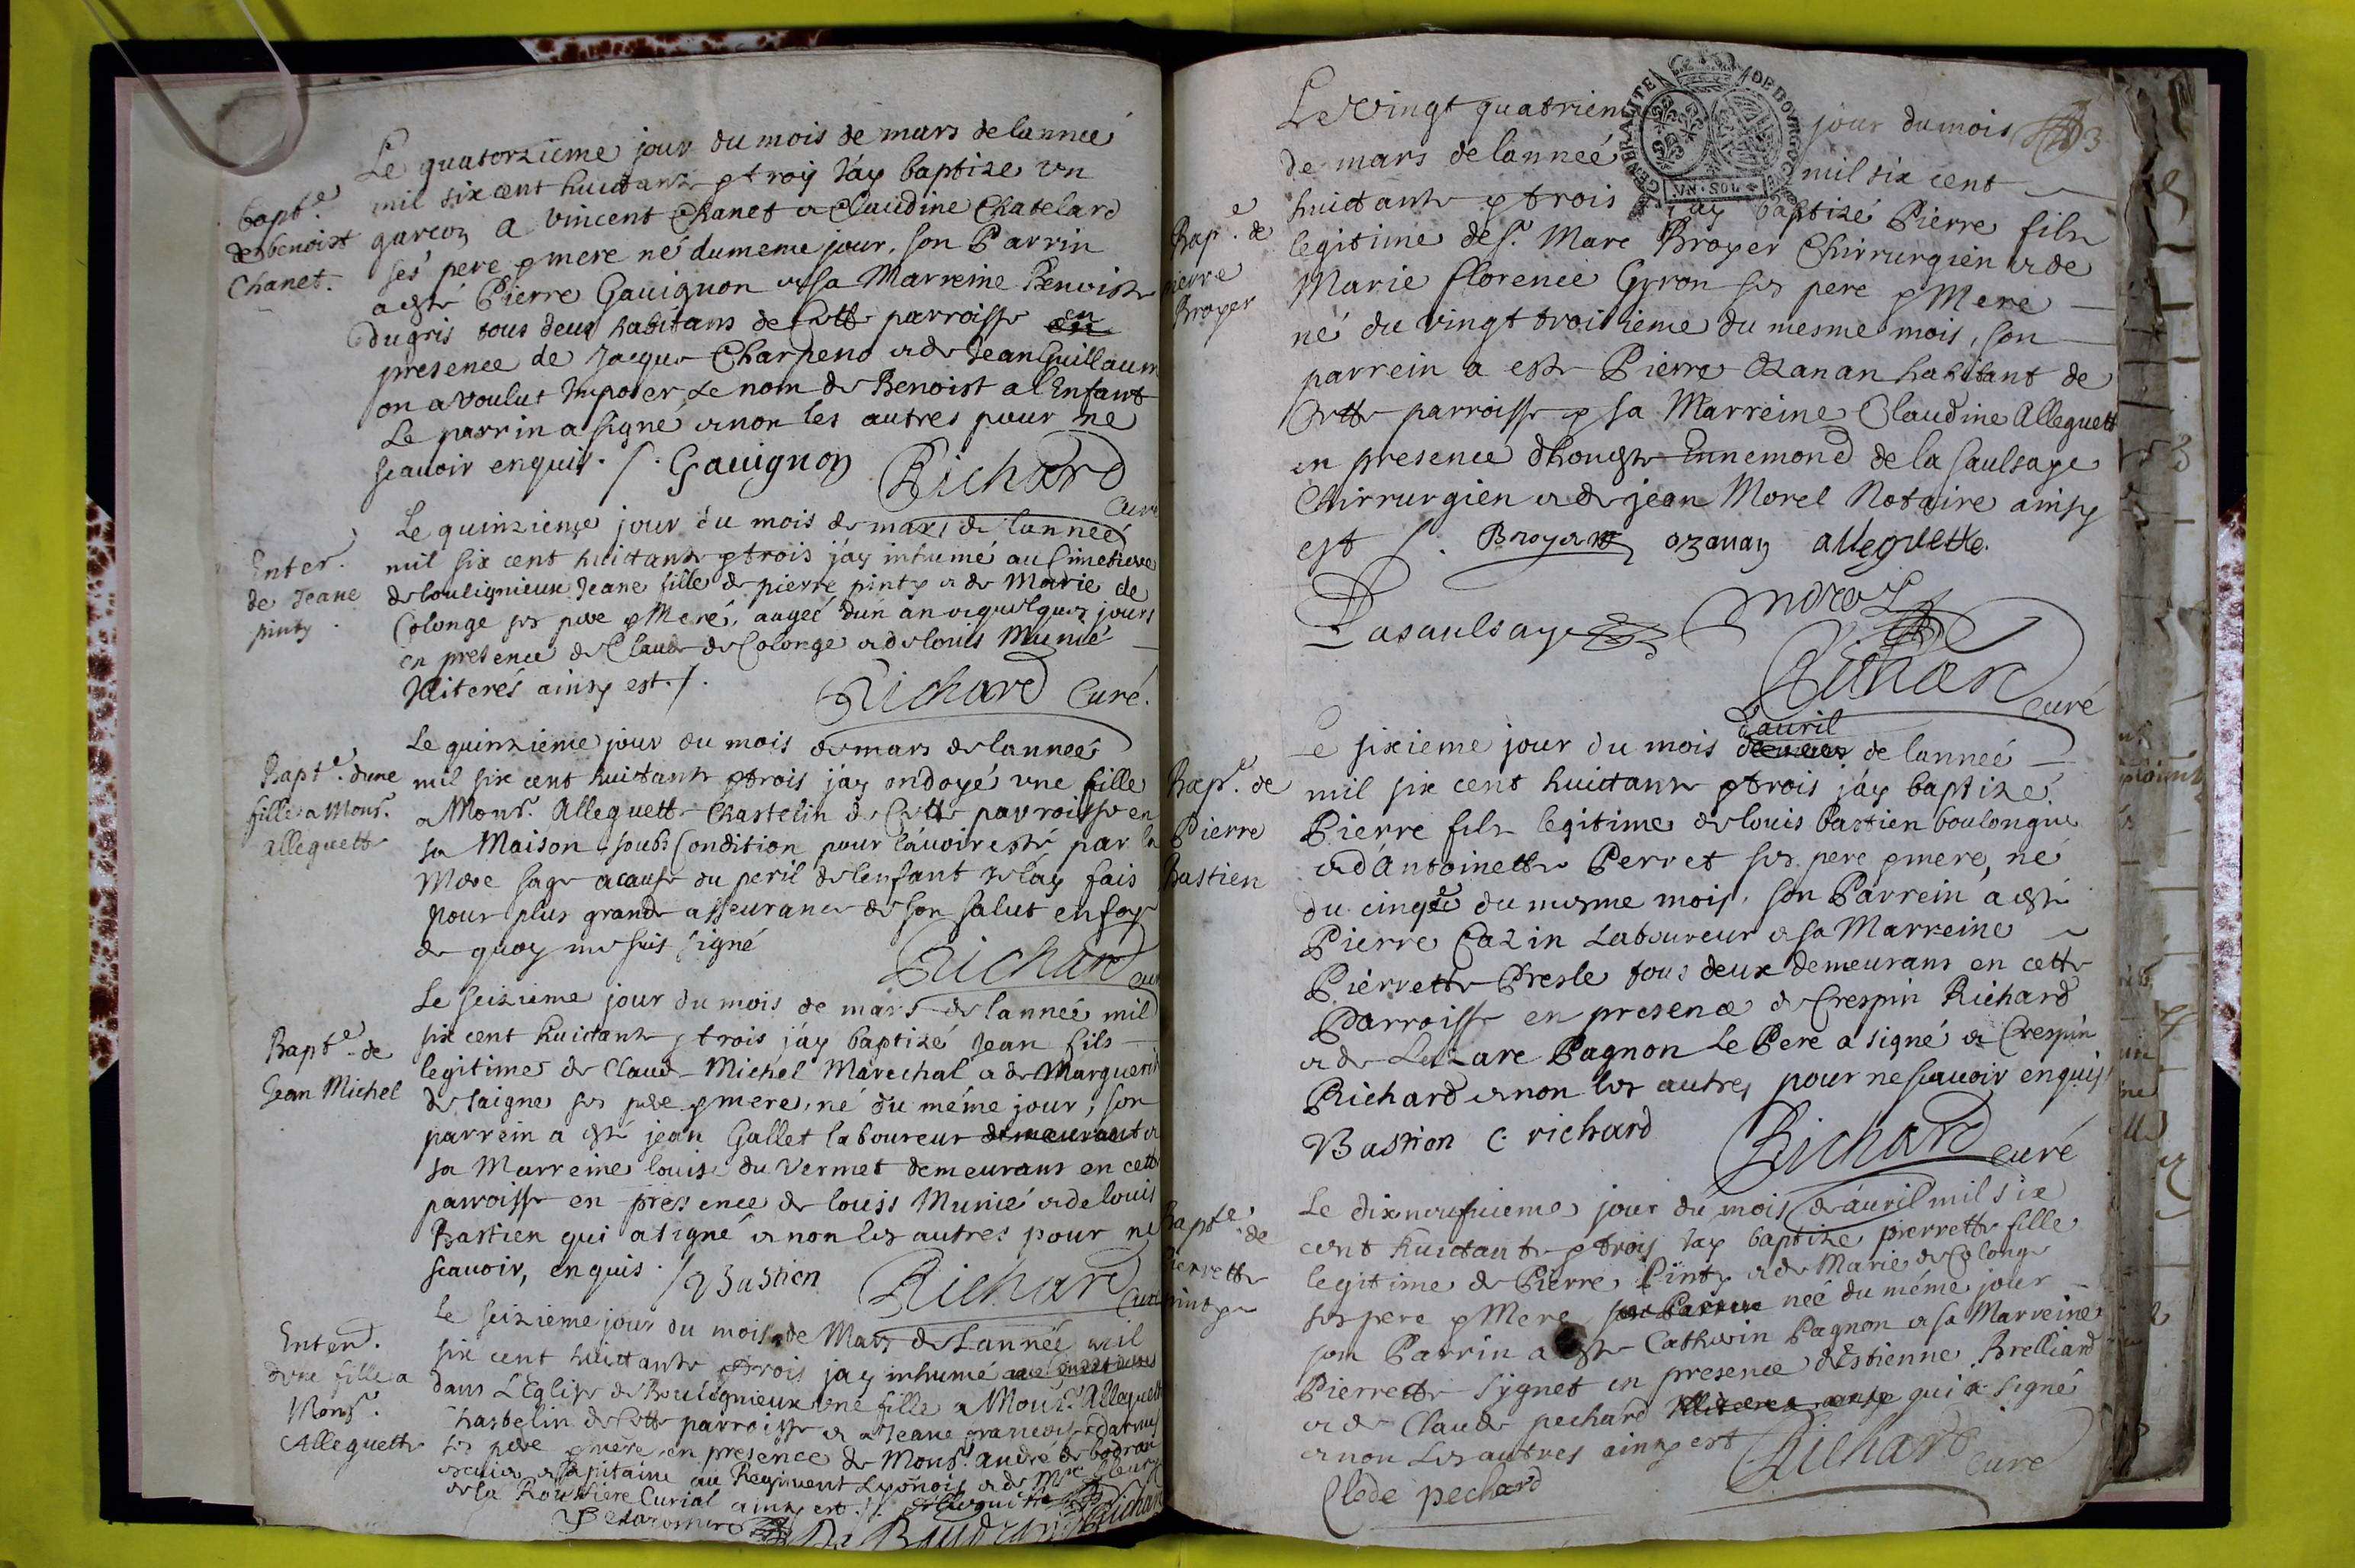 Le quatorzieme jour du mois de mars de lanneé
mil six cent huictante et troy j'ay baptize un
garcon a vincent Chanet et Claudine Chatelard
ses pere et mere né du meme jour, son Parrin
a esté Pierre Gauignon et sa Marreine Benoiste
Dugris tous deux habitans de Cette parroisse en
presence de Jacque Charpend et de Jean Guillaume
on a voulut Imposer Le nom de Benoist a l'Enfant
Le parrin a signé et non les autres pour ne
scauoir enquis. /. Gauignon Richard
Curé
bapt.e
de benoist
Chanet.
Le quinzieme jour du mois de mars de lanneé
mil six cent huictante et trois j'ay inhumé au Simetiere
de boulignieux Jeane fille de pierre pinty et de Marie de
Colonge ses pere et Mere, aageé dun an et quelques jours
en presence de Claude de Colonge et de louis Munié
Illiterés ainsy est. /. Richard Curé.
Enter.
de Jeane
pinty.
Le quinzieme jour du mois de mars de lanneé
mil six cent huictante et trois j'ay ondoyé une fille
a Mons.r Alleguette Chastelin de Cette parroisse en
sa Maison soubs Condition pour l'auoir esté par la
Mere sage a cause du peril de lenfant je lay fais
pour plus grande asseurance de son salut en foy
de quoy me suis signé Richard curé
Bapt.e dune
fille a Mons.r
alleguette
Le seizieme jour du mois de mars de lanneé mil
six cent huictante et trois j'ay baptizé Jean fils
legitime de Claude Michel Marechal et de Marguerite
de Saigne ses pere et mere, né du méme jour, son
parrein a esté jean Gallet laboureur demeurant et
sa Marreine louise du Vermet demeurans en cette
parroisse en presence de louis Munié et de louis
Bastien qui a signé et non les autres pour ne
scauoir, enquis. /. Bastien Richard Curé
Bapt.e de
Jean Michel
Le seizieme jour du mois de Mars de Lannée mil
six cent huictante et trois j'ay inhumé
dans L'Eglise de Boulignieux une fille a Mons.r Alleguette
Chastelin de Cette parroisse et a Jeane francoise
ses pere et mere, en presence de Mons.r andré de
escuier et Capitaine au Regiment Lyonnois et de
de la Rousiere Curial ainsy est. /.
Richard
Enter.
dune fille a
Mons.r
Alleguette
Le vingt quatriem jour du mois
de mars de lanneé mil six cent
huictante et trois j'ay baptizé Pierre fils
legitime de s.r Marc Broyer Chirrurgien et de
Marie florence Gyron ses pere et Mere
né du vingt troisieme du mesme mois, son
parrein a esté Pierre Ozanan habitant de
Cette parroisse et sa Marreine Claudine Alleguette
en presence dhoneste Ennemond de la Saulsaye
Chirrurgien et de jean Morel Notaire ainsy
est /. Broyer ozanan alleguette.
Lasaulsaye Morel
Richard
Curé
GENERALITE DE BOVRGOGNE
VN·SOL
3
Bap.e de
pierre
Broyer
Le sixieme jour du mois d'auril de lanneé
mil six cent huictante et trois j'ay baptizé
Pierre fils legitime de louis bastien boulongue
et d'Antoinette Perret ses pere et mere, né
du cinq.e du mesme mois, son Parrein a esté
Pierre Cazin Laboureur et sa Marreine
Pierrette Presle tous deux demeurans en cette
Parroisse en presence de Crespin Richard
et de Lazare Pagnon Le Pere a signé et Crespin
Richard et non les autres pour ne scauoir enquis
Bastien C. richard Richard curé
Bap.e de
Pierre
Bastien
Le dix neufuieme jour du mois d'auril mil six
cent huictante et trois j'ay baptize pierrette fille
legitime de Pierre Pinty et de Marie de Colonge
ses pere et Mere, son Parrin née du méme jour
son Parrin a esté Catherin Pagnon et sa Marreine
Pierrette Sygnet en presence d'Estienne Brelliard
et de Claude pechard Illiteres ainsy qui a signé
et non Les autres ainsy est Richard Curé
Clede pechard
Bapt.e de
Pierrette
pinty